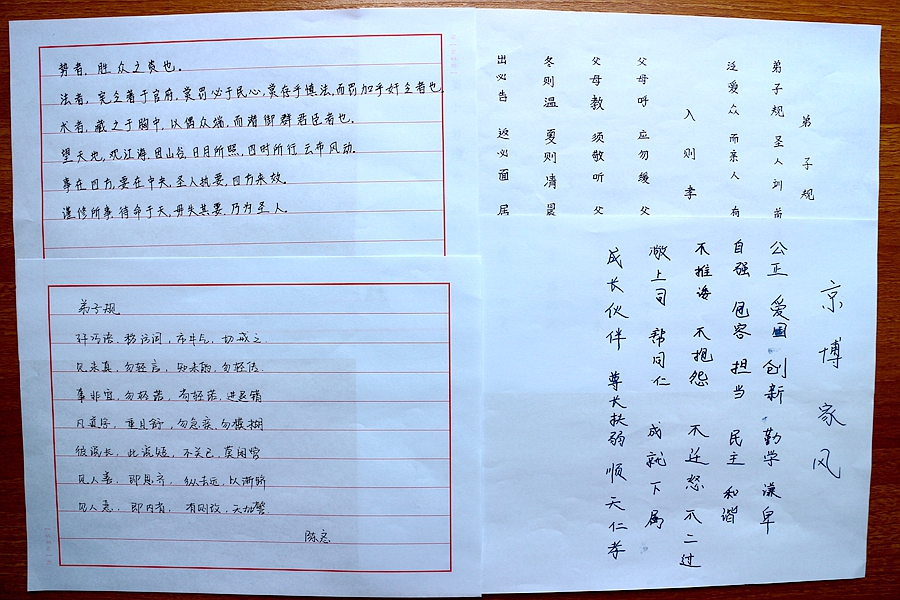 势者，胜众之资也。
法者，宪令著于官府，赏罚必于民心，赏存乎慎法，而罚加乎奸令者也
术者，藏之于胸中，以偶众端，而潜御群臣者也。
望天地，观江海，因山谷，日月所照，四时所行，云布风动。
事在四方，要在中央，圣人执要，四方来效。
谨修所事，待命于天，毋失其要，乃为圣人。
弟子规
奸巧语，秽污词，市井气，切戒之
见未真，勿轻言，知未的，勿轻传
事非宜，勿轻诺，苟轻诺，进退错
凡道字，重且舒，勿急疾，勿模糊
彼说长，此说短，不关己，莫闲管
见人善，即思齐，纵去远，以渐跻
见人恶，即内省，有则改，无加警
弟子规
弟子规 圣人训 首
泛爱众 而亲人 有
入则孝
父母呼 应勿缓 父
父母教 须敬听 父
冬则温 夏则凊 晨
出必告 返必面 居
京博家风
公正 爱国 创新 勤学 谦卑
自强 包容 担当 民主 和谐
不推诲 不抱怨 不迁怒 不二过
敬上司 帮同仁 成就下属
成长伙伴 尊长扶弱 顺天仁孝